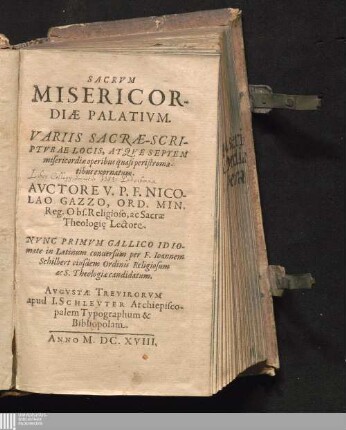 SACRVM
MISERICOR-
DIÆ PALATIVM.
VARIIS SACRÆ-SCRI-
PTVRAE LOCIS, ATQVE SEPTEM
misericordiæ operibus quasi peristroma-
tibus exornatum.
AVCTORE V. P. F. NICO-
LAO GAZZO, ORD. MIN.
Reg. Obs. Religioso, ac Sacræ
Theologię Lectore.
NVNC PRIMVM GALLICO IDIO-
mate in Latinum conversum per F. Ioannem
Schilbert eiusdem Ordinis Religiosum
ac S. Theologiæ candidatum.
AVGVSTÆ TREVIRORVM
apud I. SCHLEVTER Archiepisco-
palem Typographum &
Bibliopolam.
ANNO M. DC. XVIII.